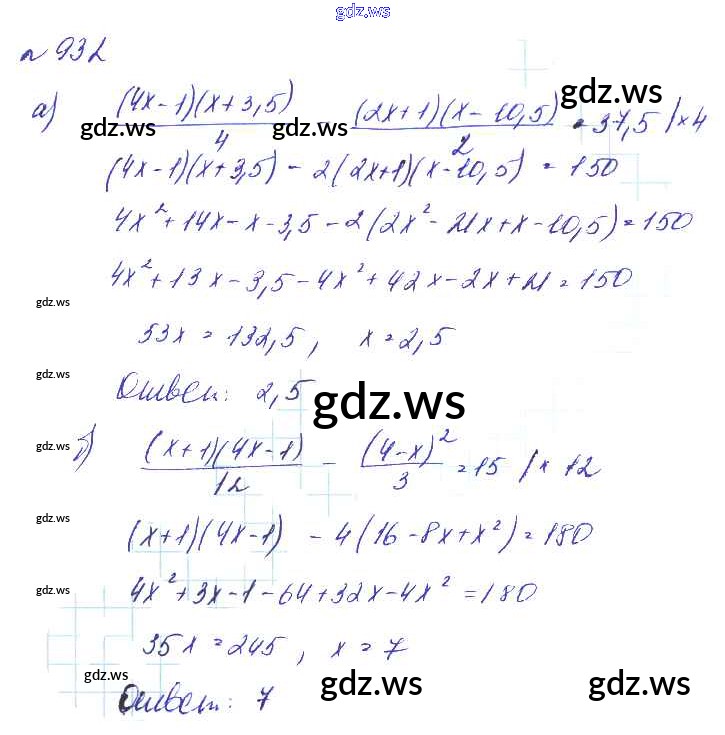 gdz.ws
№ 932
а) (4x-1)(x+3,5)/4 - (2x+1)(x-10,5)/2 = 37,5 /×4
gdz.ws gdz.ws gdz.ws gdz.ws
(4x-1)(x+3,5) - 2(2x+1)(x-10,5) = 150
4x²+14x-x-3,5-2(2x²-21x+x-10,5)=150
4x²+13x-3,5-4x²+42x-2x+21=150
gdz.ws
53x = 132,5, x=2,5
gdz.ws
Ответ: 2,5
gdz.ws
б) (x+1)(4x-1)/12 - (4-x)²/3 = 15 /×12
gdz.ws
gdz.ws
(x+1)(4x-1) - 4(16-8x+x²)=180
4x²+3x-1-64+32x-4x²=180
gdz.ws
35x=245, x=7
Ответ: 7
gdz.ws gdz.ws gdz.ws